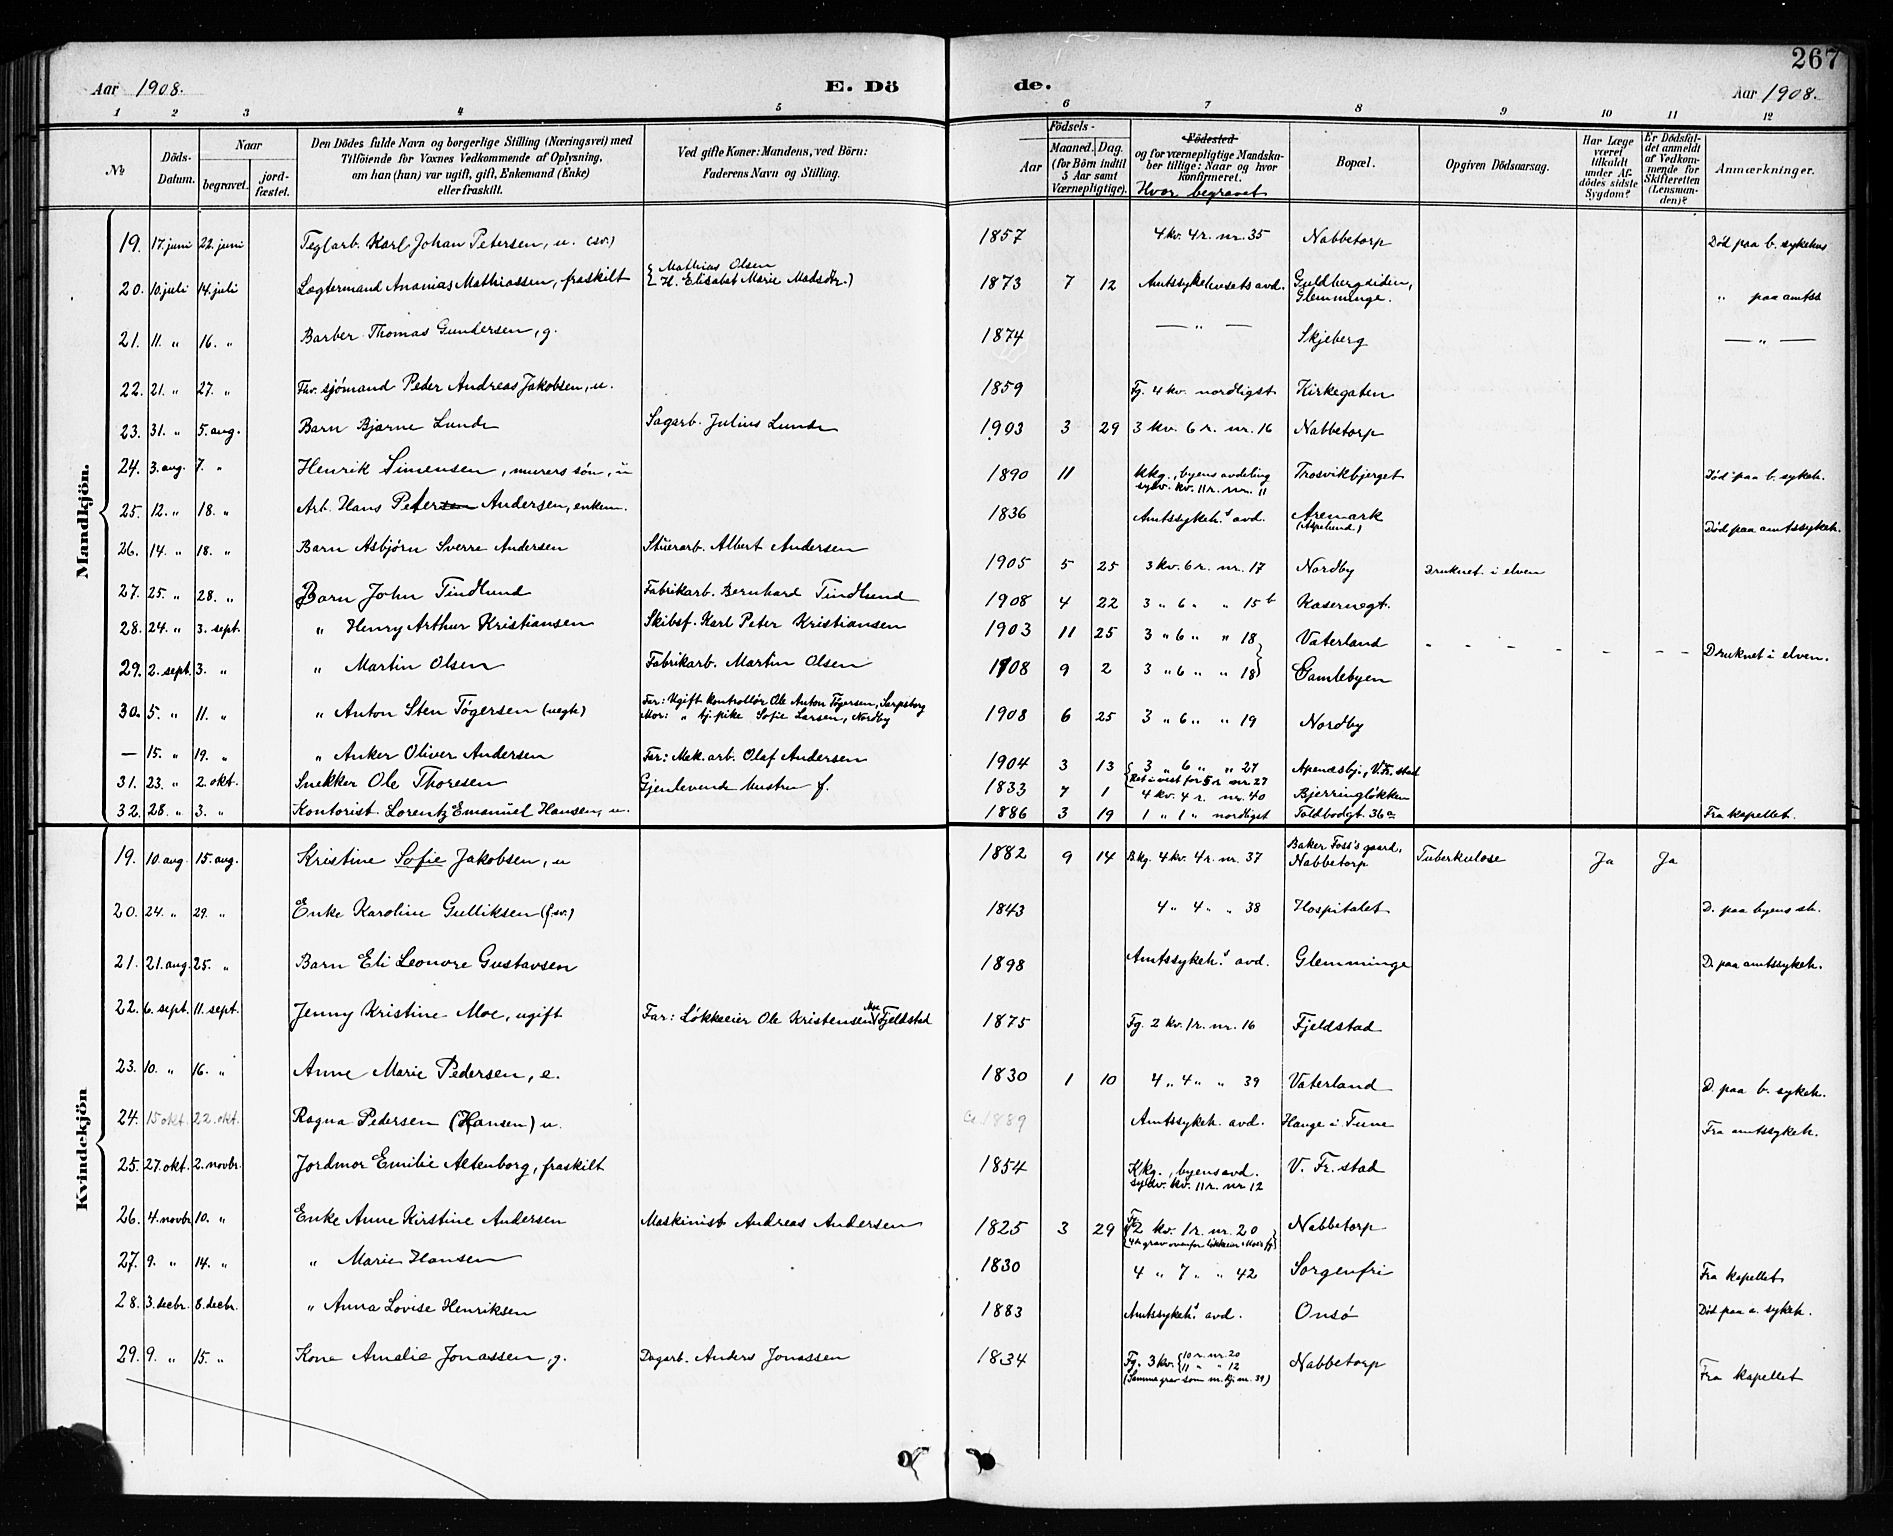 267
Aar 1908.
E. Dö
de.
Aar 1908.
1 2 3 4 5 6 7 8 9 10 11 12
№
Döds-Datum.
Naar
begravet.
jord-fæstet.
Den Dödes fulde Navn og borgerlige Stilling (Næringsvei) med
Tilföiende for Voxnes Vedkommende af Oplysning,
om han (hun) var ugift, gift, Enkemand (Enke)
eller fraskilt.
Ved gifte Koner: Mandens, ved Börn:
Faderens Navn og Stilling.
Födsels-
Aar
Maaned. Dag.
(for Börn indtil
5 Aar samt
Værnepligtige).
Födested
og for værnepligtige Mandska-
ber tillige: Naar og hvor
konfirmeret.
Hvor begravet
Bopæl.
Opgiven Dödsaarsag.
Har Læge
været
tilkaldt
under Af-
dödes sidste
Sygdom?
Er Dödsfal-
det anmeldt
af Vedkom-
mende for
Skifteretten
(Lensman-
den)?
Anmærkninger.
Mandkjön.
19. 17. juni 22. juni Teglarb. Karl Johan Petersen, u. (sv.) 1857 4 kv. 4 r. nr. 35 Nabbetorp Död paa b. sykehus
20. 10. juli 14. juli Lægtermand Ananias Mathiassen, fraskilt { Mathias Olsen
{ H. Elisabet Marie Madsdtr.) 1873 7 12 Amtssykehusets avd. Guldbergsiden,
Glemminge. " paa amtss
21. 11. " 16. " Barber Thomas Gundersen, g. 1874 — " — Skjeberg — " —
22. 21. " 27. " Fhv. sjömand Peder Andreas Jakobsen, u. 1859 Fg. 4 kv. nordligst Kirkegaten
23. 31. " 5. aug. Barn Bjarne Lunde Sagarb. Julius Lunde 1903 3 29 3 kv. 6 r. nr. 16 Nabbetorp
24. 3. aug. 7. " Henrik Simensen, murers sön, u 1890 11 kkg., byens avdeling
sydv. kv. 11 r. nr. 11 Trosvikbjerget Död paa b. sykeh.
25. 12. " 18. " Arb. Hans Petersen Andersen, enkem. 1836 Amtssykeh.s avd. Aremark
(Aspelund) Död paa amtssykeh.
26. 14. " 18. " Barn Asbjörn Sverre Andersen Stuerarb. Albert Andersen 1905 5 25 3 kv. 6 r. nr. 17 Nordby Druknet i elven
27. 25. " 28. " Barn John Tindlund Fabrikarb. Bernhard Tindlund 1908 4 22 3 " 6 " " 15 b Kasernegt.
28. 24. " 3. sept. " Henry Arthur Kristiansen Skibsf. Karl Peter Kristiansen 1903 11 25 3 " 6 " " 18 } Vaterland - - - - - - - Druknet i elven.
29. 2. sept. 3. " " Martin Olsen Fabrikarb. Martin Olsen 1908 9 2 3 " 6 " " 18 } Gamlebyen
30. 5. " 11. " " Anton Sten Tögersen (uegte) Far: Ugift kontrollör Ole Anton Tögersen, Sarpsborg
Mor: " tj.pike Sofie Larsen, Nordby 1908 6 25 3 " 6 " " 19 Nordby
— 15. " 19. " " Anker Oliver Andersen Far: Mek. arb. Olaf Andersen 1904 3 13 { 3 " 6 " " 27
{ Ret i vest for 5 r nr. 27 Apenesbj., V. Fr.stad
31. 23. " 2. okt. Snekker Ole Thoresen Gjenlevende hustru f. 1833 7 1 4 kv. 4 r. nr. 40 Bjerringlökken
32. 28. " 3. " Kontorist Lorentz Emanuel Hansen, u. 1886 3 19 1 " 1 " nordligst Toldbodgt. 36 a Fra kapellet.
Kvindekjön
19. 10. aug. 15. aug. Kristine Sofie Jakobsen, u 1882 9 14 Bkg. 4 kv. 4 r. nr. 37 Baker Foss's gaard,
Nabbetorp Tuberkulose Ja Ja
20. 24. " 29. " Enke Karoline Gulliksen (f.sv.) 1843 4 " 4 " " 38 Hospitalet D. paa byens sh.
21. 21. aug. 25. " Barn Eli Leonore Gustavsen 1898 Amtssykeh.s avd. Glemminge D. paa amtssykeh.
22. 6. sept. 11. sept. Jenny Kristine Moe, ugift Far: Lökkeeier Ole Kristensen Moe Fjeldstad 1875 Fg. 2 kv. 1 r. nr. 16 Fjeldstad
23. 10. " 16. " Anne Marie Pedersen, e. 1830 1 10 4 " 4 " " 39 Vaterland D. paa b. sykeh.
24. 15 okt. 22. okt. Ragna Pedersen (Hansen) u. Ca. 1889 Amtssykeh. avd. Hauge i Tune Fra amtssykeh.
25. 27. okt. 2. novbr. Jordmor Emilie Altenborg, fraskilt 1854 Kkg., byens avd.
sydv. kv. 11 r. nr 12 V. Fr.stad
26. 4. novbr 10. " Enke Anne Kirstine Andersen Maskinist Andreas Andersen 1825 3 29 Fg. 2 kv. 1 r. nr. 20 Nabbetorp
27. 9. " 14. " " Marie Hansen 1830 4 " 7 " " 42 Sorgenfri Fra kapellet
28. 3. decbr. 8. decbr. " Anna Lovise Henriksen 1883 Amtssykeh.s avd. Onsö Död paa a. sykeh.
29. 9. " 15. " Kone Amalie Jonassen, g. Dagarb. Anders Jonassen 1834 Fg. 3 kv. { 10 r. nr. 20
11 " " 12
(Samme grav som m.kj. nr. 39) Nabbetorp Fra kapellet